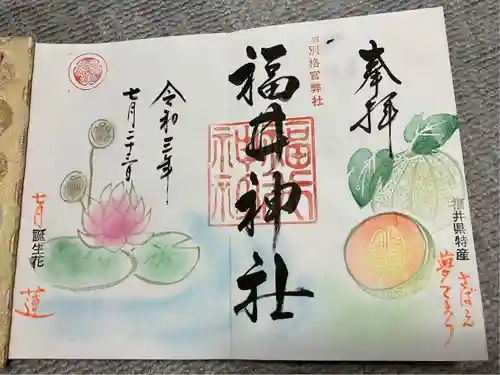 奉拝
旧別格官幣社
福井神社
福井神社
令和三年
七月二十二日
福井県特産
きばえ
夢てまり
七月
誕生花
蓮